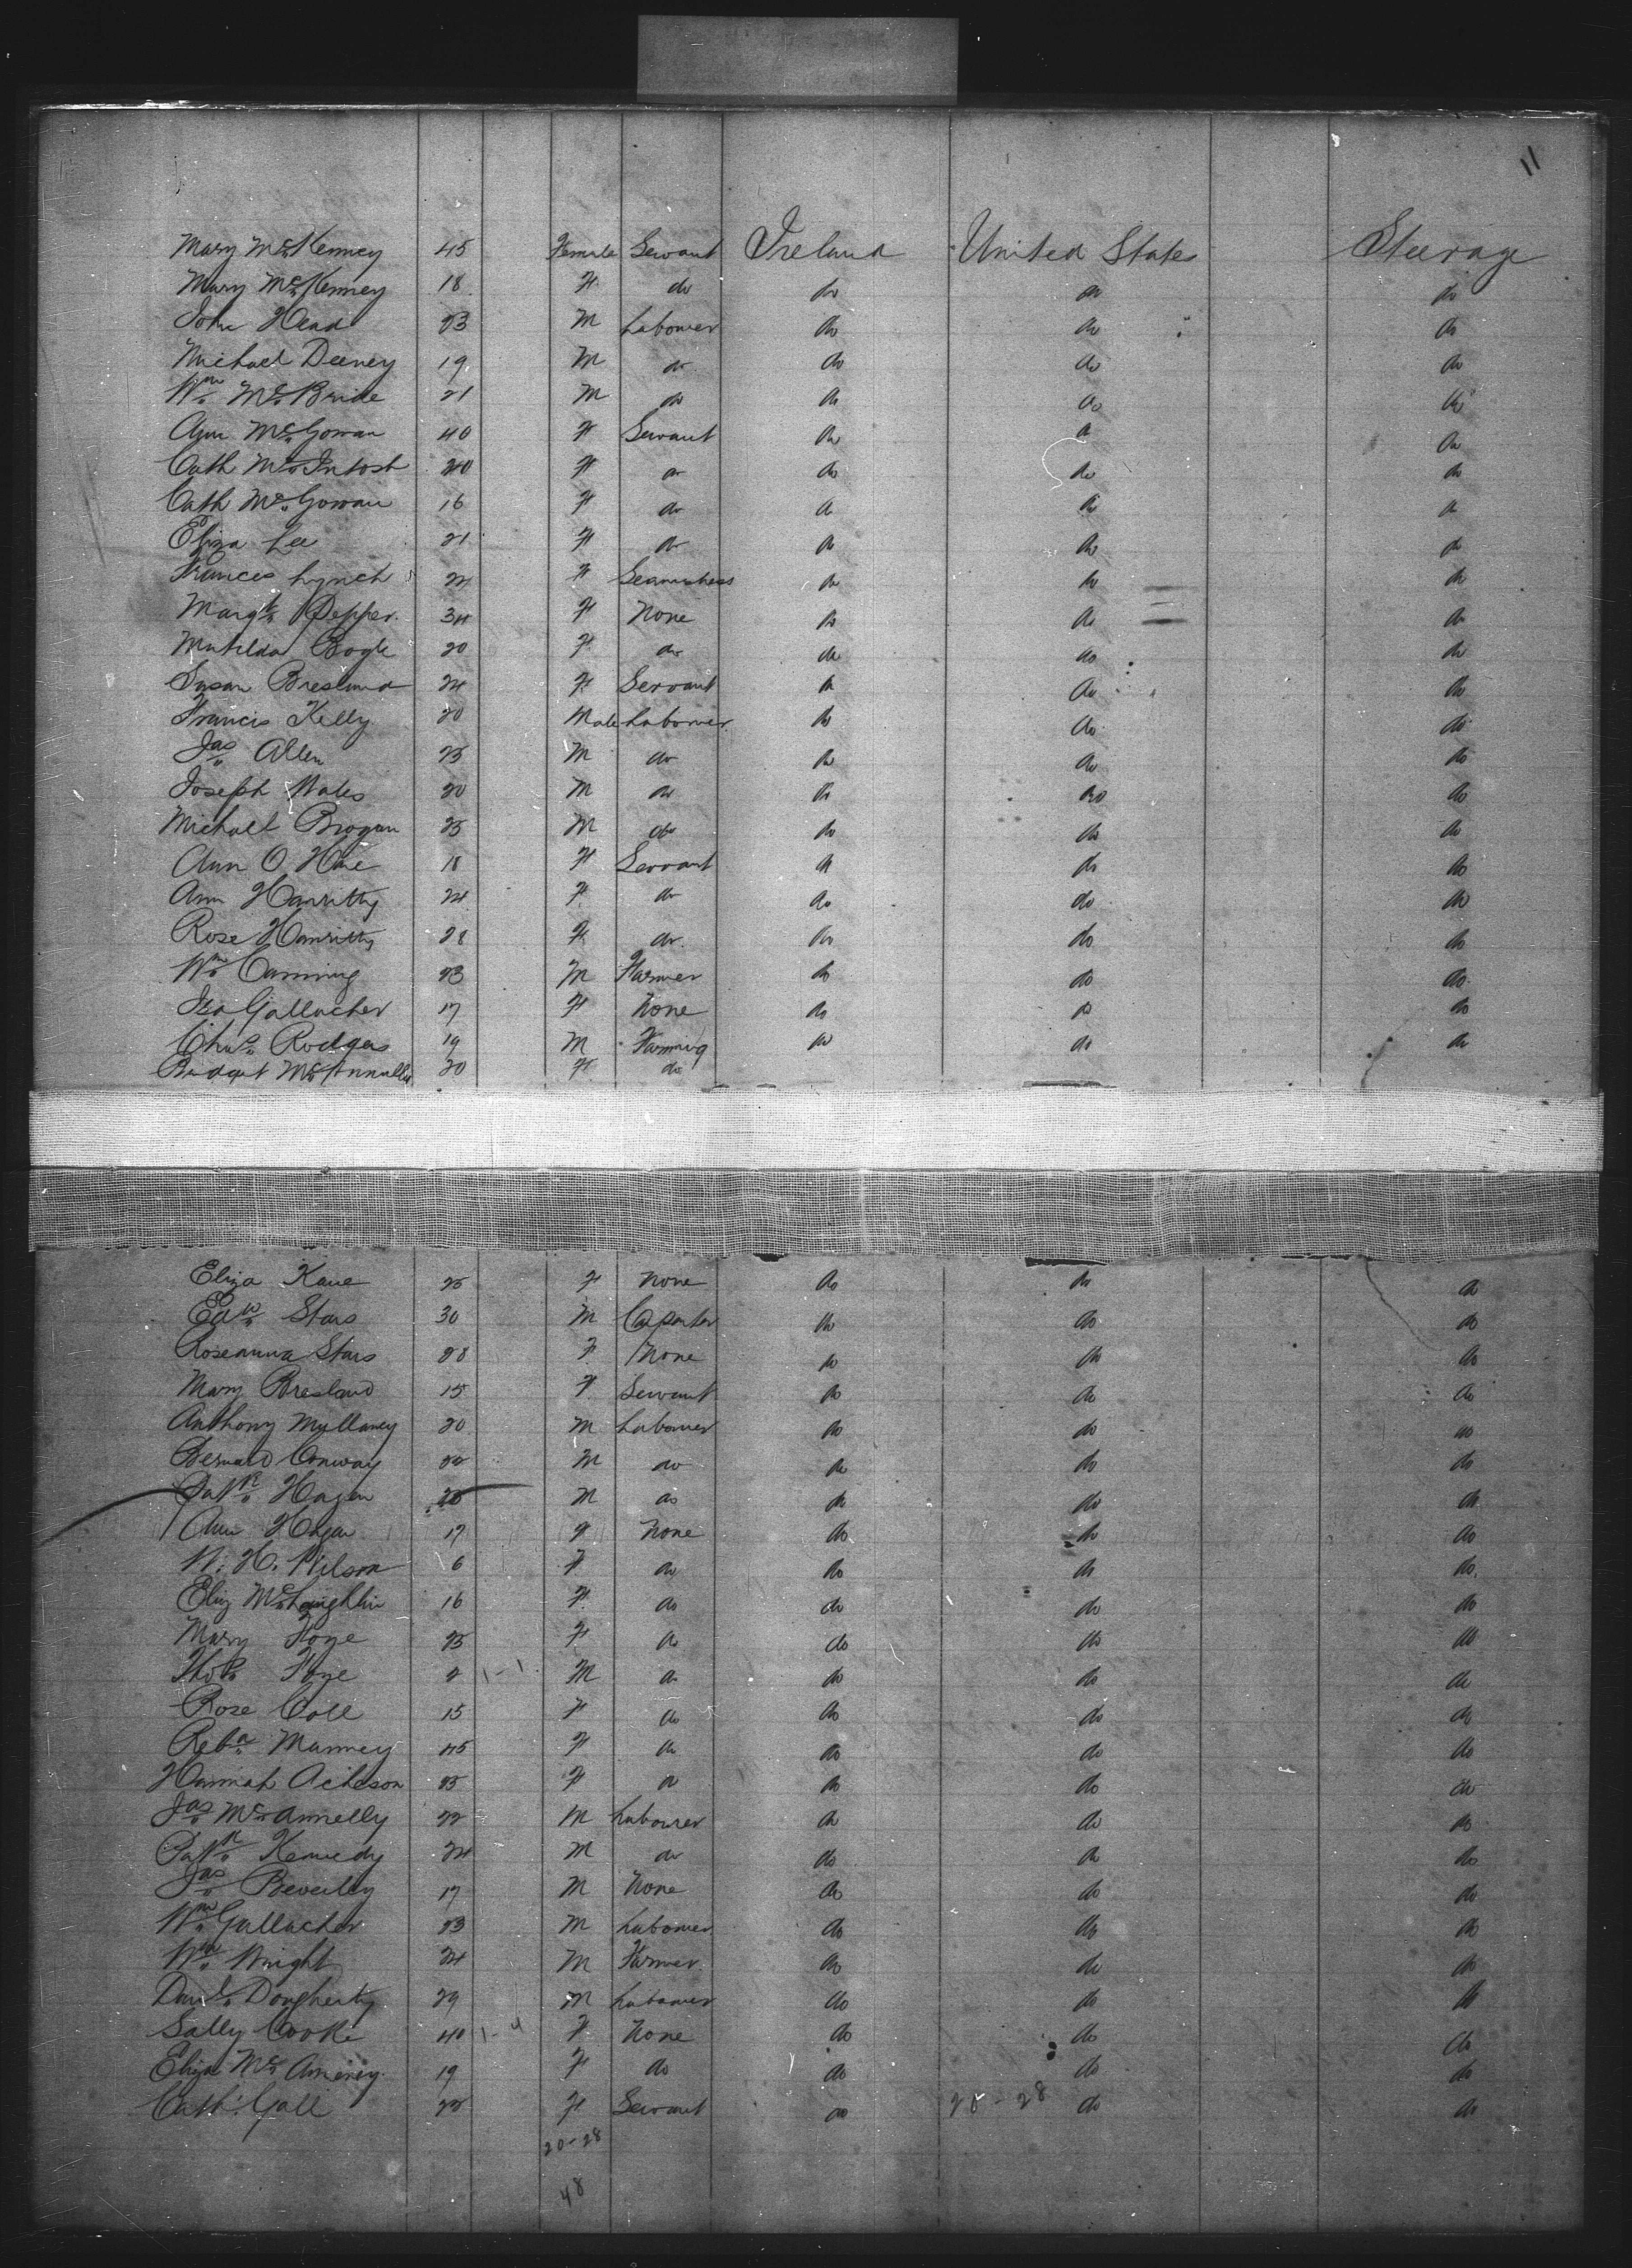 11
Mary McKenney 45 Female Servant Ireland United States Steerage
Mary McKenney 18 F do do do do
John Head 23 M Labourer do do do
Michael Deeney 19 M do do do do
Wm McBride 21 M do do do do
Ann McGowan 40 F Servant do do do
Cath McIntosh 20 F do do do do
Cath McGowan 16 F do do do do
Eliza Lee 21 F do do do do
Frances Lynch 24 F Seamstress do do do
Margt Pepper 34 F None do do do
Matilda Bogle 20 F do do do do
Susan Bresland 24 F Servant do do do
Francis Kelly 20 Male Labourer do do do
Jas Allen 25 M do do do do
Joseph Wates 20 M do do do do
Michael Brogan 25 M do do do do
Ann O Hare 18 F Servant do do do
Ann Hanritty 24 F do do do do
Rose Hanritty 28 F do do do do
Wm Canning 23 M Farmer do do do
Isa Gallacher 17 F None do do do
Chas Rodgers 19 M Farming do do do
Bridget 20 F do
Eliza Kane 25 F None do do do
Edw Stars 30 M Carpenter do do do
Roseanna Stars 28 F None do do do
Mary Bresland 15 F Servant do do do
Anthony Mullaney 20 M Labourer do do do
Bernard Conway 22 M do do do do
Patk Hagan M do do do do
Ann Hagan 17 F None do do do
N. H. Wilson 6 F do do do do
Eliz McLaughlin 16 F do do do do
Mary Foye 25 F do do do do
Thos Foye 2 1-1 M do do do do
Rose Coll 15 F do do do do
Reba Manney 45 F do do do do
Hannah Acheson 25 F do do do do
Jas McAnnelly 22 M Labourer do do do
Patk Kennedy 24 M do do do do
Jas Beverley 17 M None do do do
Wm Gallacher 23 M Labourer do do do
Wm Wright 24 M Farmer do do do
Danl Dougherty 29 M Labourer do do do
Sally Cooke 40 1-4 F None do do do
Eliza McAneney 19 F do do do do
Cath Gall 22 F Servant do 20-28 do do
20-28
48